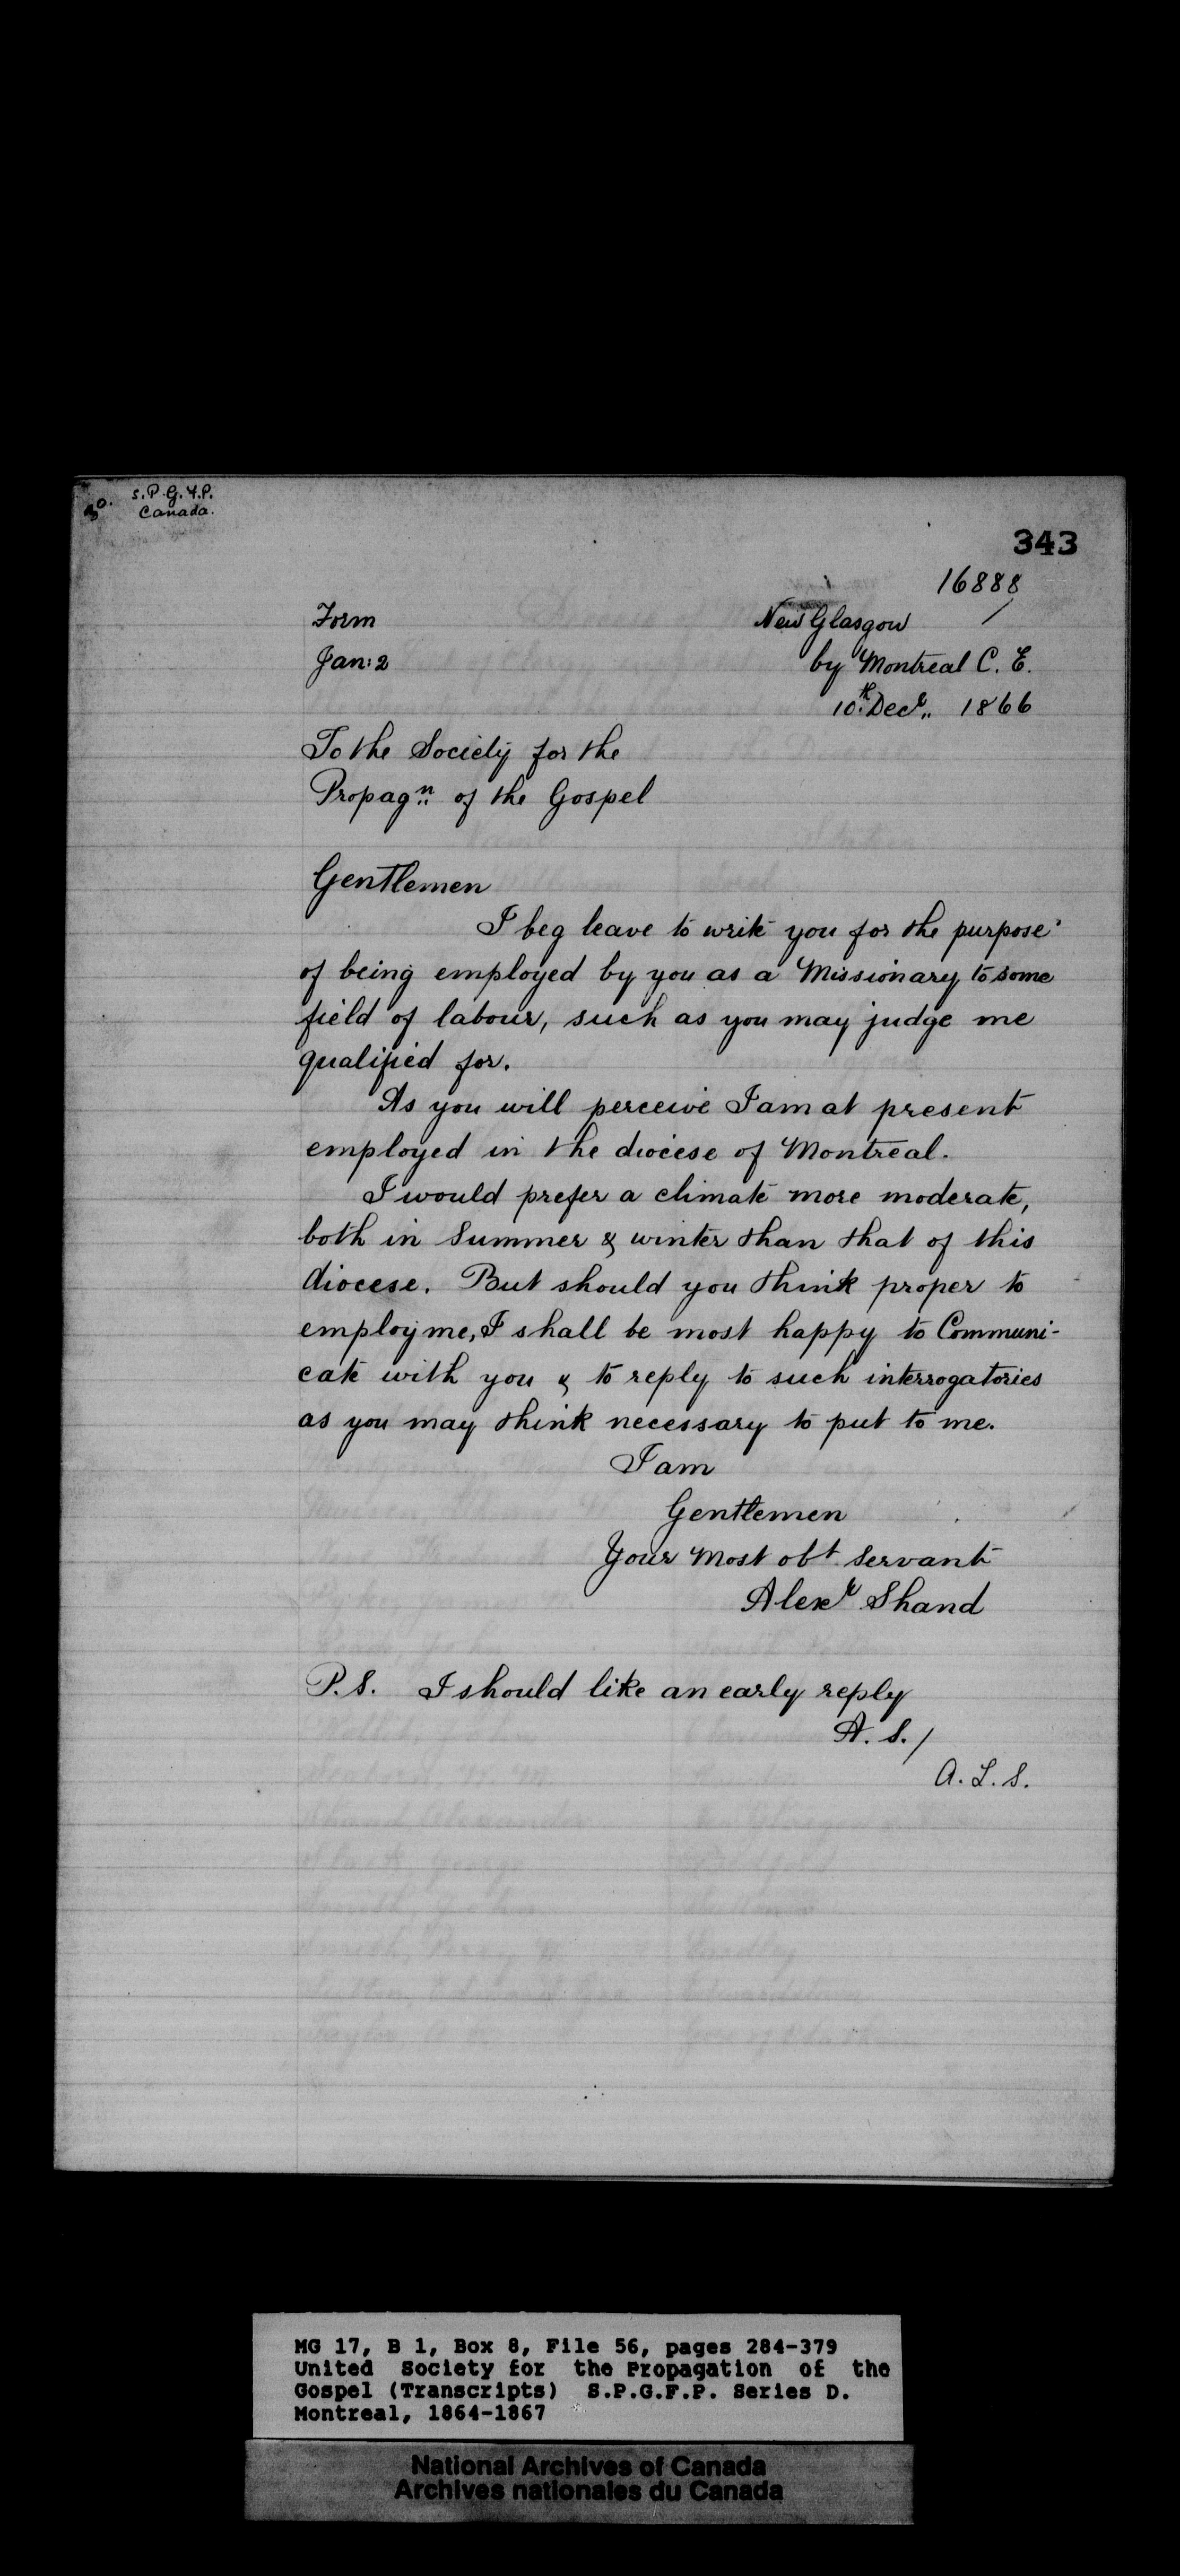 S.P.G.F.P.
Canada.
343
16888
Form
New Glasgow
Jan: 2
by Montreal C. E.
10th Decr. 1866
To the Society for the
Propagn. of the Gospel
Gentlemen
I beg leave to write you for the purpose
of being employed by you as a Missionary to some
field of labour, such as you may judge me
qualified for.
As you will perceive I am at present
employed in the diocese of Montreal.
I would prefer a climate more moderate,
both in Summer & winter than that of this
diocese. But should you think proper to
employ me, I shall be most happy to Communi-
cate with you & to reply to such interrogatories
as you may think necessary to put to me.
I am
Gentlemen
Your Most obt Servant
Alexr Shand
P.S. I should like an early reply
A. S./
A. L. S.
MG 17, B 1, Box 8, File 56, pages 284-379
United Society for the Propagation of the
Gospel (Transcripts) S.P.G.F.P. Series D.
Montreal, 1864-1867
National Archives of Canada
Archives nationales du Canada